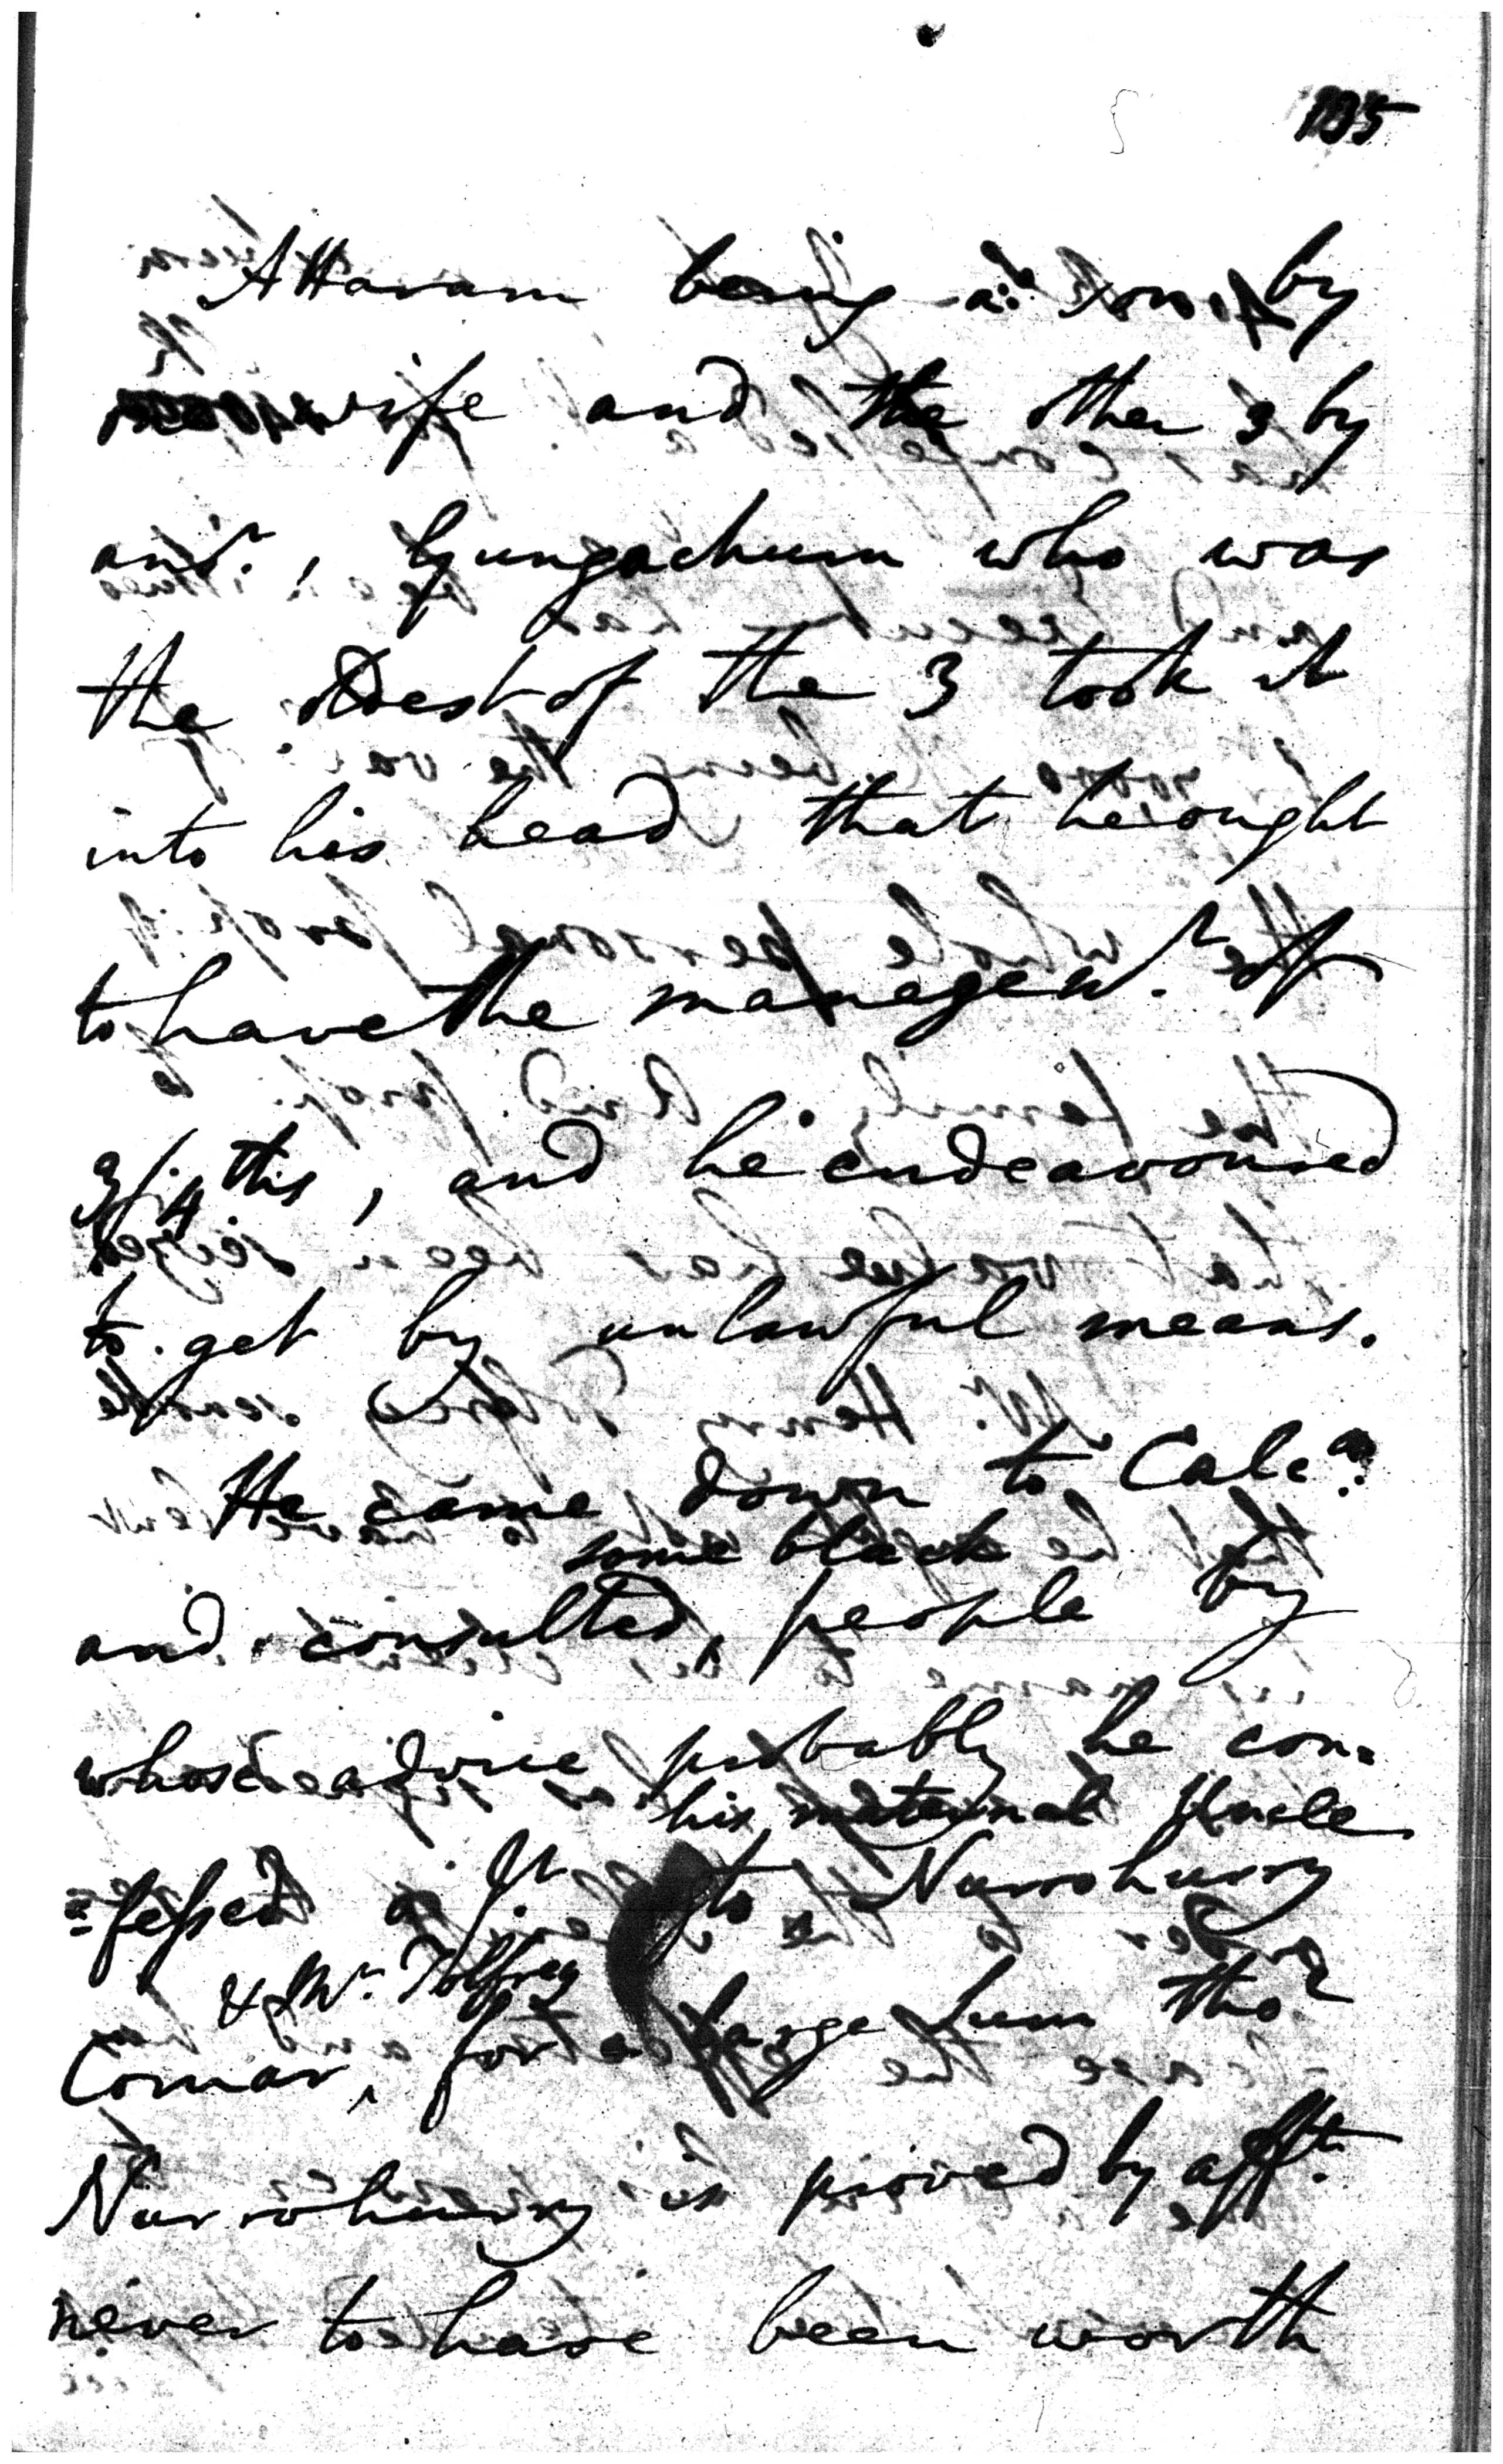 135
Attaram being a son by
wife and the other 3 by
anr., Gungachurn who was
the oldest of the 3 took it
into his head that he ought
to have the managemt. of
3/4 ths, and he endeavoured
to get by unlawful means.
He came down to Calca.
some black
and consulted, people by
whose advice probably he con=
his maternal Uncle
=fessed a Jt to Narrohurry
& Mr. Tolfrey
Comar, for a large sum tho'
Narrohurry is proved by afft.
never to have been worth